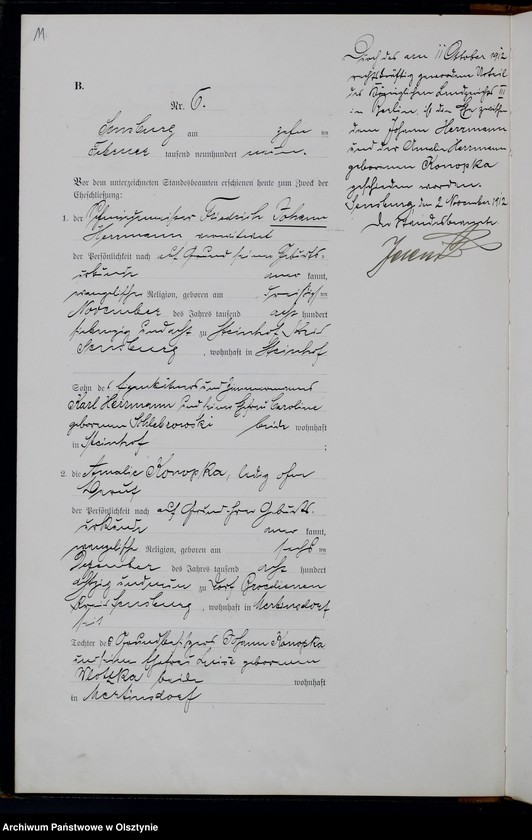 11.
B.
Nr. 6.
Sensburg am zehn ten
Februar tausend neunhundert neun.
Vor dem unterzeichneten Standesbeamten erschienen heute zum Zweck der
Eheschließung:
1. der Friedrich Johann
Herrmann
der Persönlichkeit nach auf Grund seiner Geburts-
urkunde aner kannt,
evangelischer Religion, geboren am dreißigs ten
November des Jahres tausend acht hundert
siebenzig und acht zu Steinhof Kreis
Sensburg, wohnhaft in Steinhof
Sohn des und
Karl Herrmann und seiner Ehefrau Caroline
geborenen beide wohnhaft
in Steinhof ;
2. die Amalie Konopka, ledig ohne
Beruf
der Persönlichkeit nach auf Grund ihrer Geburts-
urkunde aner kannt,
evangelischer Religion, geboren am sechs ten
Dezember des Jahres tausend acht hundert
achtzig und neun zu Dorf
Kreis Sensburg, wohnhaft in Mertinsdorf
Tochter des Grundbesitzers Johann Konopka
und seiner Ehefrau Luise geborenen
beide wohnhaft
in Mertinsdorf
Durch das am 11 Oktober 1912
rechtskräftig gewordene Urteil
des Königlichen Landgerichts III
in Berlin ist die Ehe zwischen
dem Johann Herrmann
und der Amalie Herrmann
geborenen Konopka
geschieden worden.
Sensburg den 2 November 1912
Der Standesbeamte
Archiwum Państwowe w Olsztynie